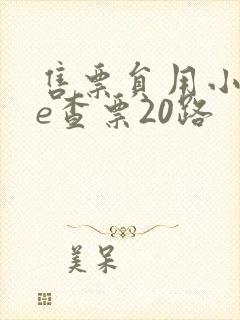 售票员用小
e查票20路
美呆